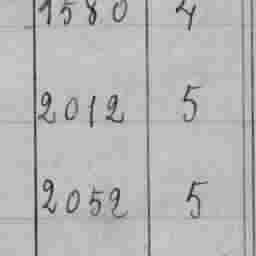 1580 4
2012 5
2052 5